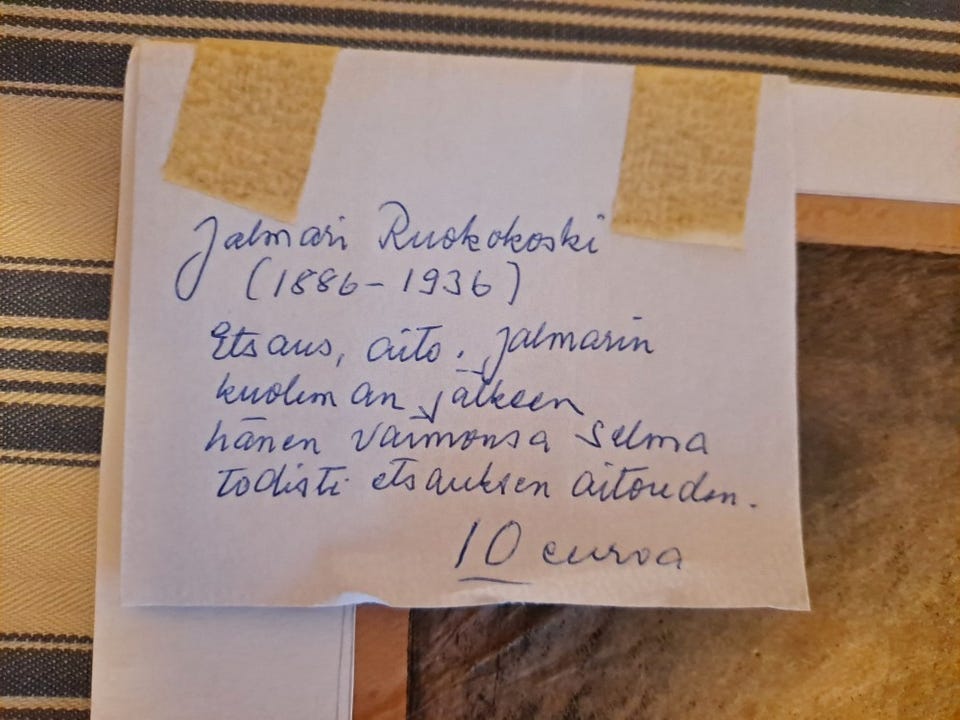 Jalmari Ruokokoski
(1886-1936)
Etsaus, aito. Jalmarin
kuoleman jälkeen
hänen vaimonsa Selma
todisti etsauksen aitouden.
10 euroa